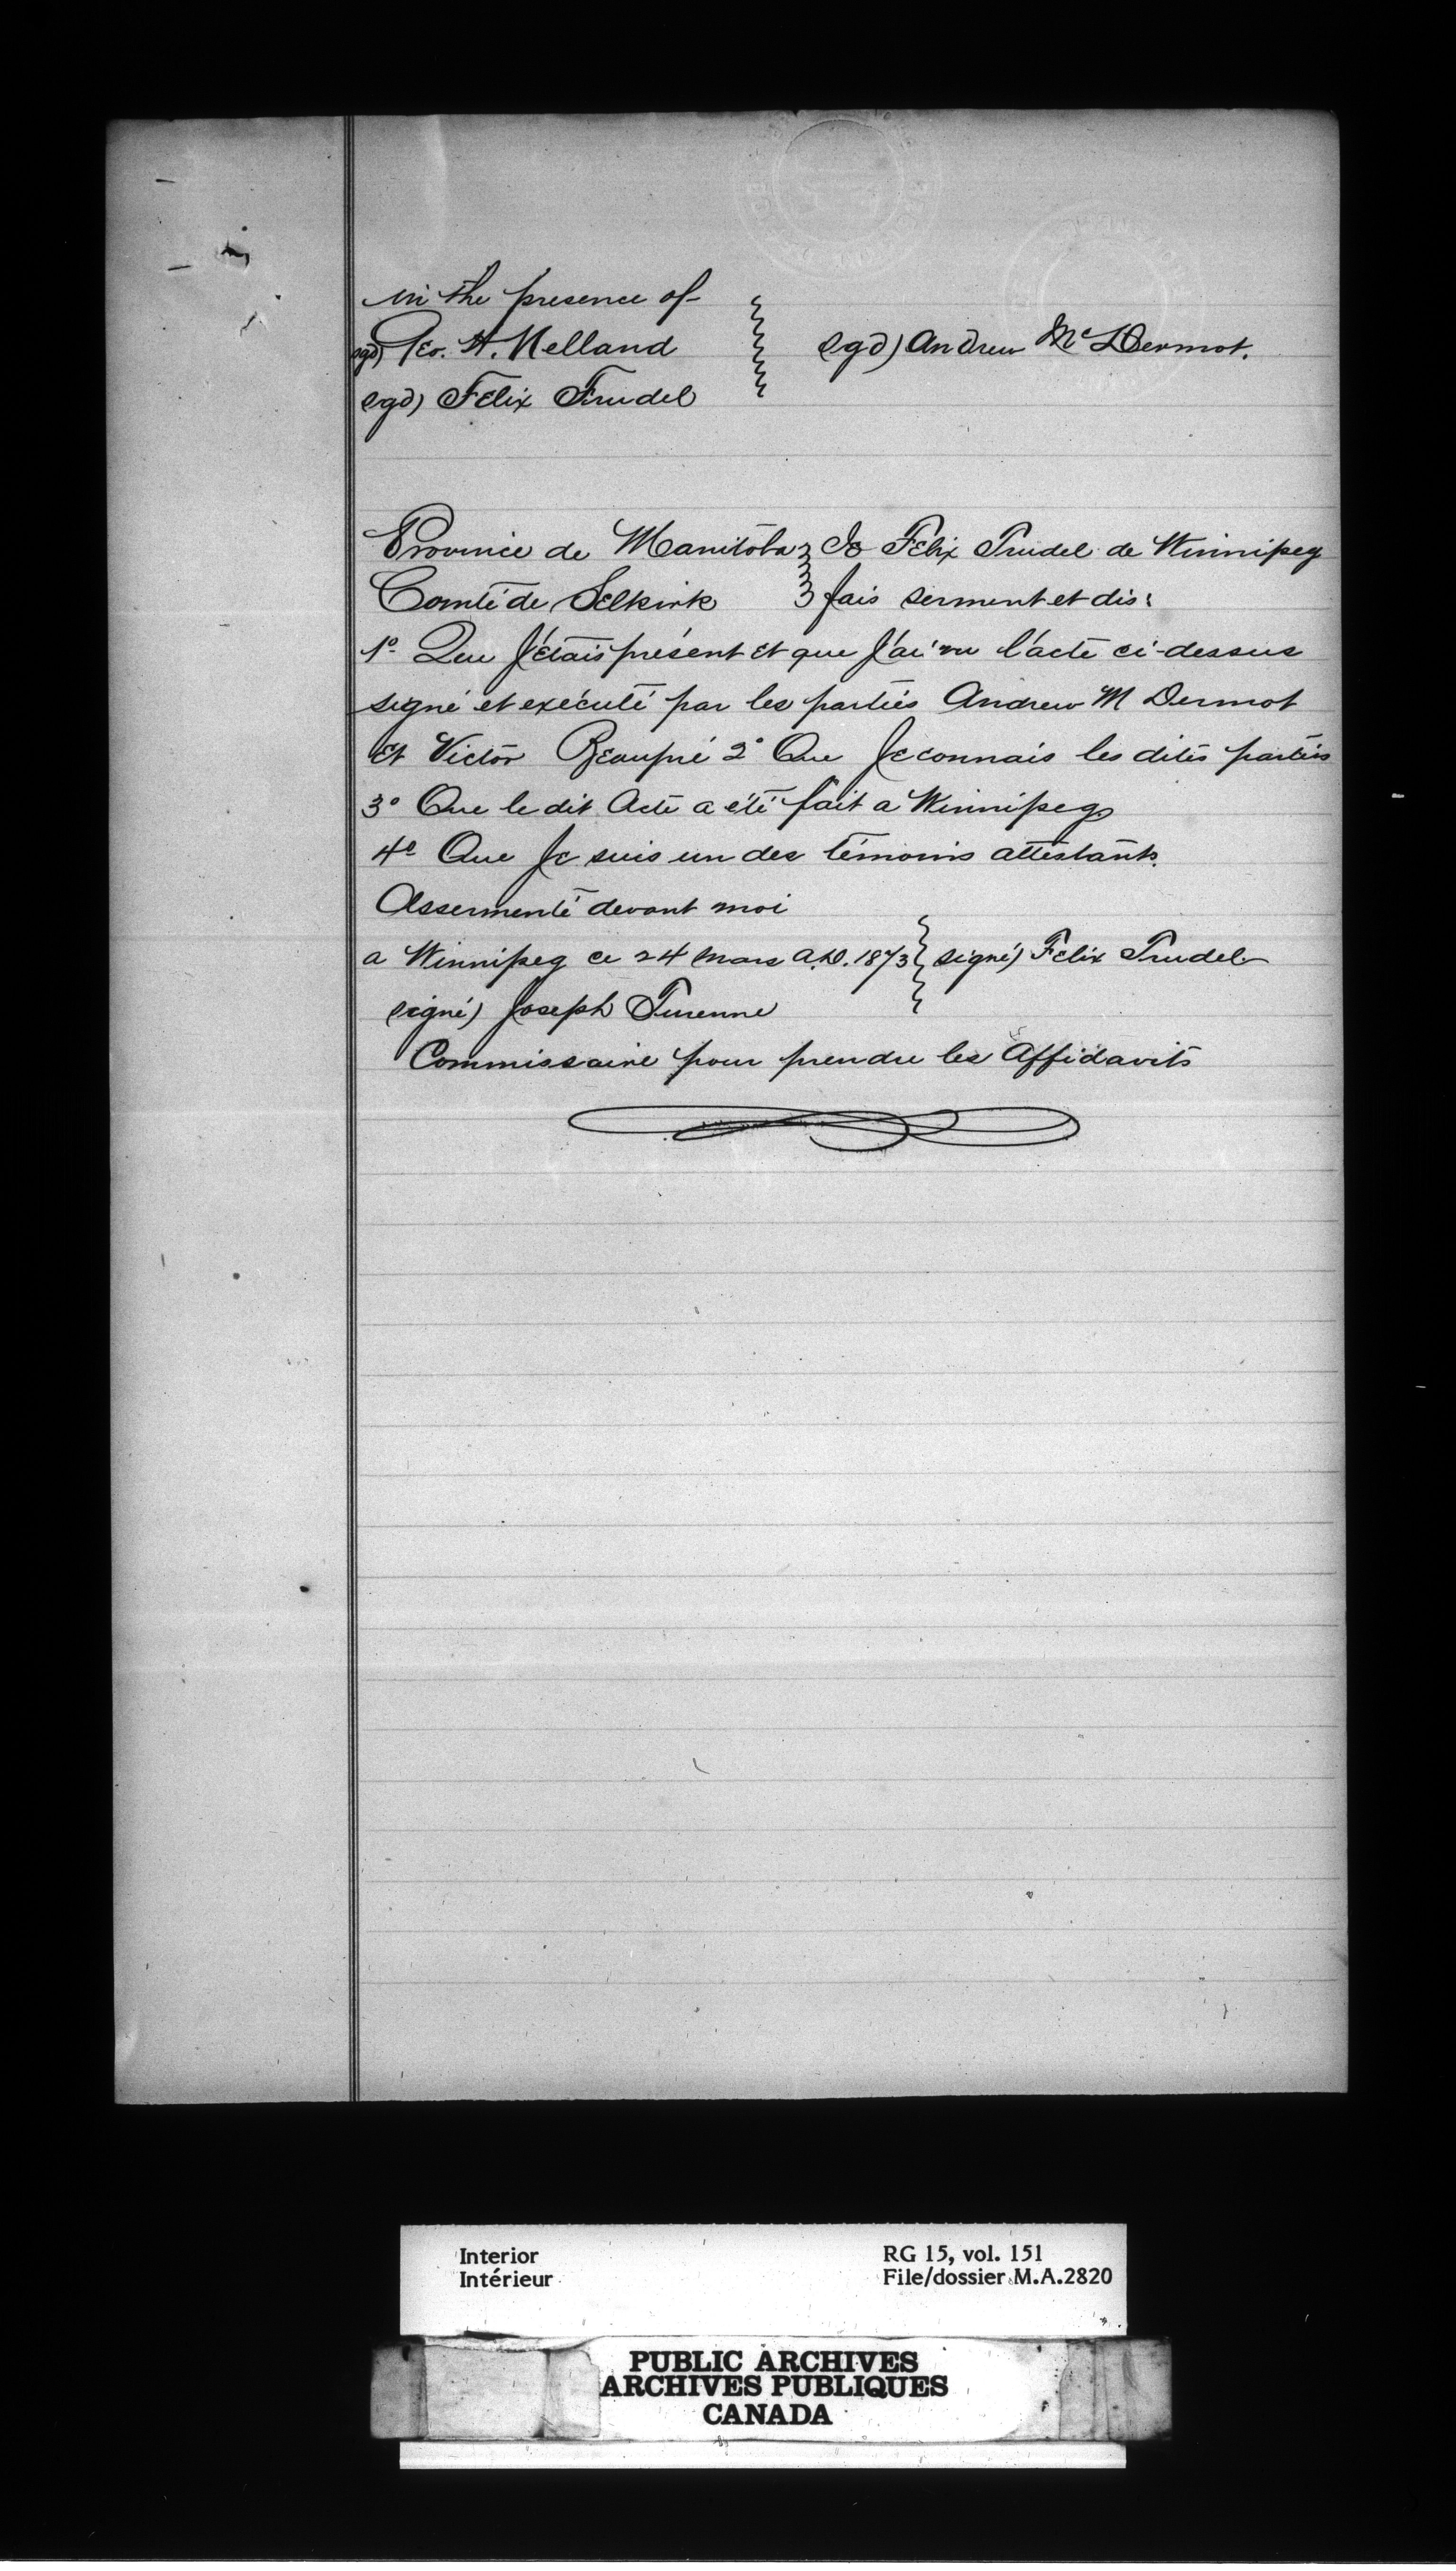 in the presence of
sgd) Geo. H. Kelland } sgd) Andrew McDermot.
sgd) Felix Trudel
Province de Manitoba } Je Felix Trudel de Winnipeg
Comté de Selkirk } fais serment et dis:
1o Que J'étais présent et que J'ai vu l'acte ci-dessus
signé et exécuté par les parties Andrew M Dermot
et Victor Beaupré 2o Que Je connais les dites parties
3o Que le dit Acte a été fait a Winnipeg
4o Que Je suis un des témoins attestants.
Assermenté devant moi
a Winnipeg ce 24 Mars A.D. 1873 } signé) Felix Trudel
signé) Joseph Turenne
Commissaire pour prendre les Affidavits
Interior RG 15, vol. 151
Intérieur File/dossier M.A.2820
PUBLIC ARCHIVES
ARCHIVES PUBLIQUES
CANADA